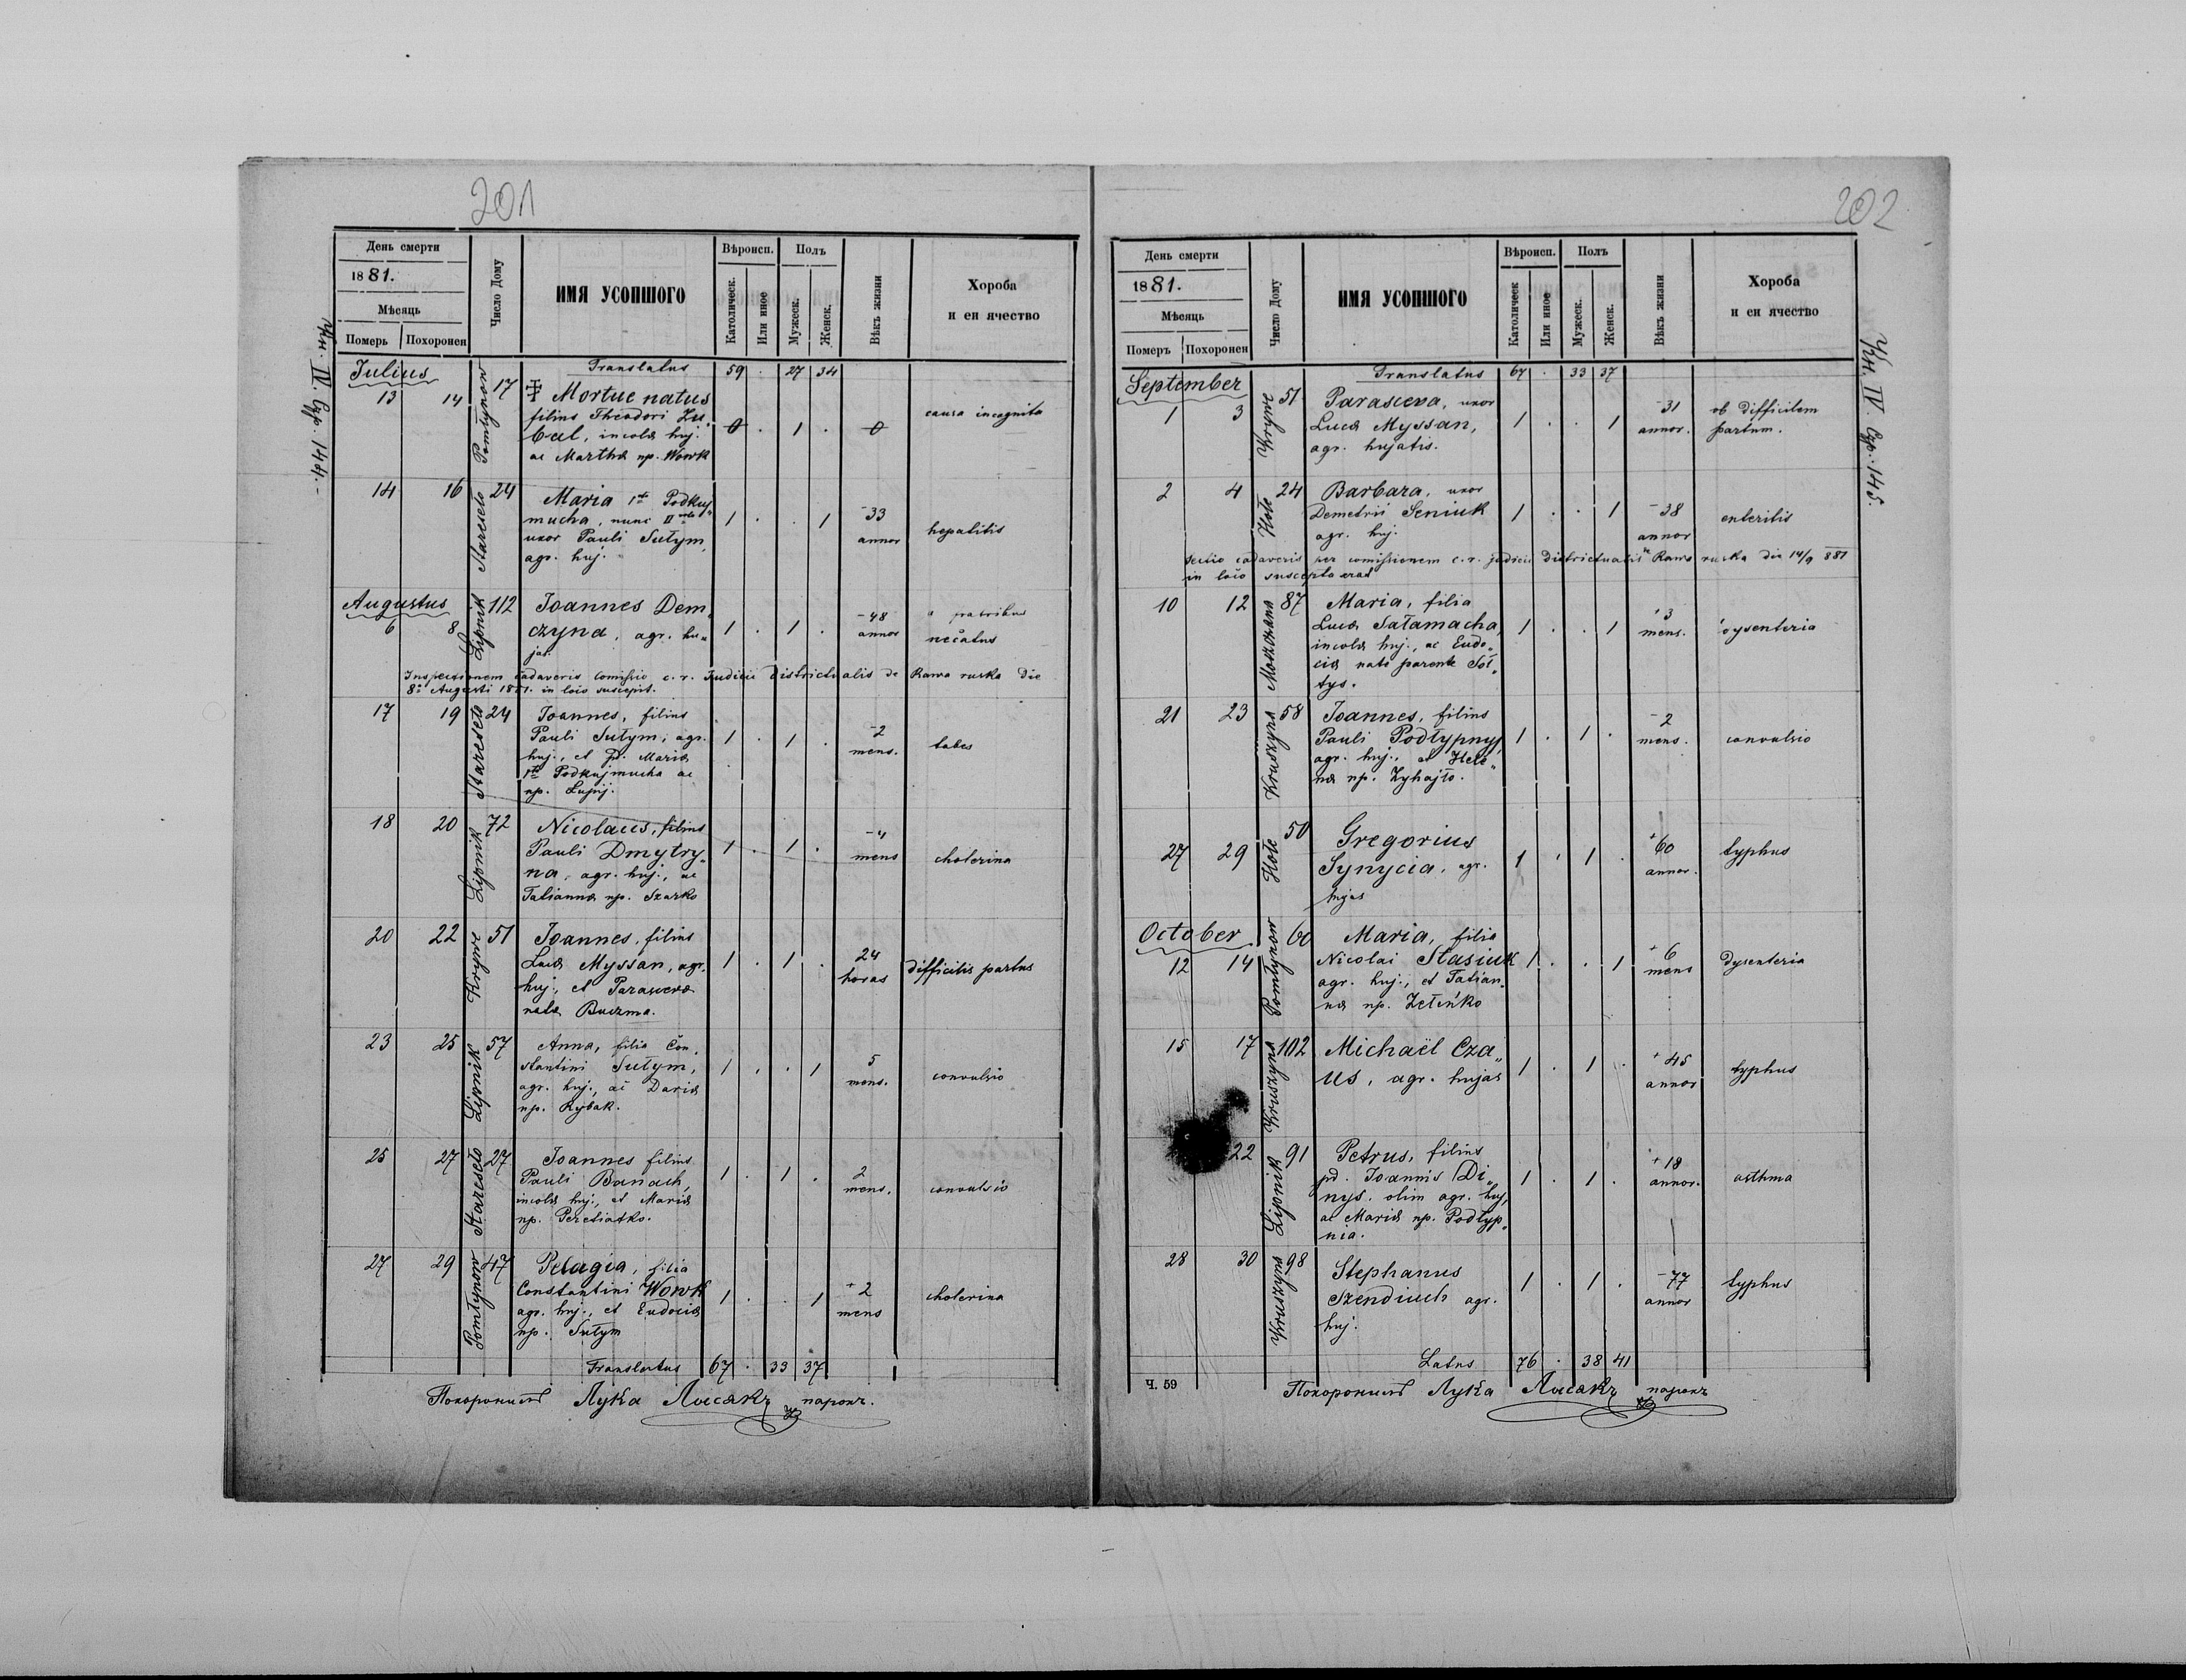 201
День смерти
1881.
Мѣсяць
Померь Похоронен
Число Дому
ИМЯ УСОПШОГО
Вѣроисп.
Католическ.
Или иное
Полъ
Мужеск.
Женск.
Вѣкъ жизни
Хороба
и еи ячество
Julius
Translatus 59 . 27 34
13 14 Pomłynow 17 Mortue natus
filius Theodori Zu„
bal, incolæ huj.
ac Marthæ np. Wowk
0 . 1 . 0 causa incognita
14 16 Stareseło 24 Maria 1° Podkuj„
mucha, nunc II voto
uxor Pauli Sułym,
agr. huj.
1 . . 1 -33
annor hepatitis
Augustus
6 8 Lipnik 112 Joannes Dem„
czyna, agr. hu„
jas.
1 . 1 . -48
annor a fratribus
necatus
Inspectionem cadaveris comissio c. r. Judicii Districtualis de Rawa ruska die
8° Augusti 1881. in loco suscepit.
17 19 Stareseło 24 Joannes, filius
Pauli Sułym, agr.
huj., et p. Mariæ
1° Podkujmucha ac
np. Łupij.
1 . 1 . -2
mens. tabes
18 20 Lipnik 72 Nicolaus, filius
Pauli Dmytry„
na, agr. huj., ac
Tatiannæ np. Szarko
1 . 1 . -4
mens cholerina
20 22 Krywe 51 Joannes, filius
Lucæ Myssan, agr.
huj., et Parascevæ
nata Buczma.
1 . 1 . 24
horas difficilis partus
23 25 Lipnik 57 Anna, filia Con„
stantini Sułym,
agr. huj., ac Dariæ
np. Rybak.
1 . . 1 5
mens. convulsio
25 27 Stareseło 27 Joannes filius
Pauli Banach,
incolæ huj., et Mariæ
np. Peretiatko.
1 . 1 . 2
mens. convulsio
27 29 Pomłynow 47 Pelagia, filia
Constantini Wowk
agr. huj., et Eudociæ
np. Sułym
1 . . 1 +2
mens cholerina
Translatus 67 . 33 37
Похоронилъ Лука Лисакъ парохъ.
202
День смерти
1881.
Мѣсяць
Померъ Похоронен
Число Дому
ИМЯ УСОПШОГО
Вѣроисп.
Католическ
Или иное
Полъ
Мужеск.
Женск.
Вѣкъ жизни
Хороба
и еи ячество
September
Translatus 67 . 33 37
1 3 Krywe 51 Parasceva, uxor
Lucæ Myssan,
agr. hujatis.
1 . . 1 -31
annor. ob difficilem
partum.
2 4 Hołe 24 Barbara, uxor
Demetrii Seniuk
agr. huj.
1 . . 1 -38
annor enteritis
Sectio cadaveris per comissionem c. r. judicii Districtualis Rawa ruska die 14/9 881
in loco suscepta erat
10 12 Moszczana 87 Maria, filia
Lucæ Sałamacha,
incolæ huj., ac Eudo„
ciæ natæ parente Soł„
tys.
1 . . 1 +3
mens. dysenteria
21 23 Kruszyna 58 Joannes, filius
Pauli Podłypnyj,
agr. huj., et Hele„
næ np. Zyhajło.
1 . 1 . -2
mens. convulsio
27 29 Hołe 50 Gregorius
Synycia, agr.
hujas
1 . 1 . +60
annor. typhus
October
12 14 Pomłynow 60 Maria, filia
Nicolai Stasiuk
agr. huj., et Tatian„
næ np. Zeleńko
1 . . 1 +6
mens dysenteria
15 17 Kruszyna 102 Michaël Cza„
us, agr. hujas
1 . 1 . +45
annor typhus
22 Lipnik 91 Petrus, filius
pd. Joannis Di„
nys, olim agr. huj,
ac Mariæ np. Podłyp„
nia.
1 . 1 . +18
annor. asthma
28 30 Kruszyna 98 Stephanus
Szendiuch agr.
huj.
1 . 1 . -77
annor typhus
Latus 76 . 38 41
Ч. 59
Похоронилъ Лука Лисакъ парохъ